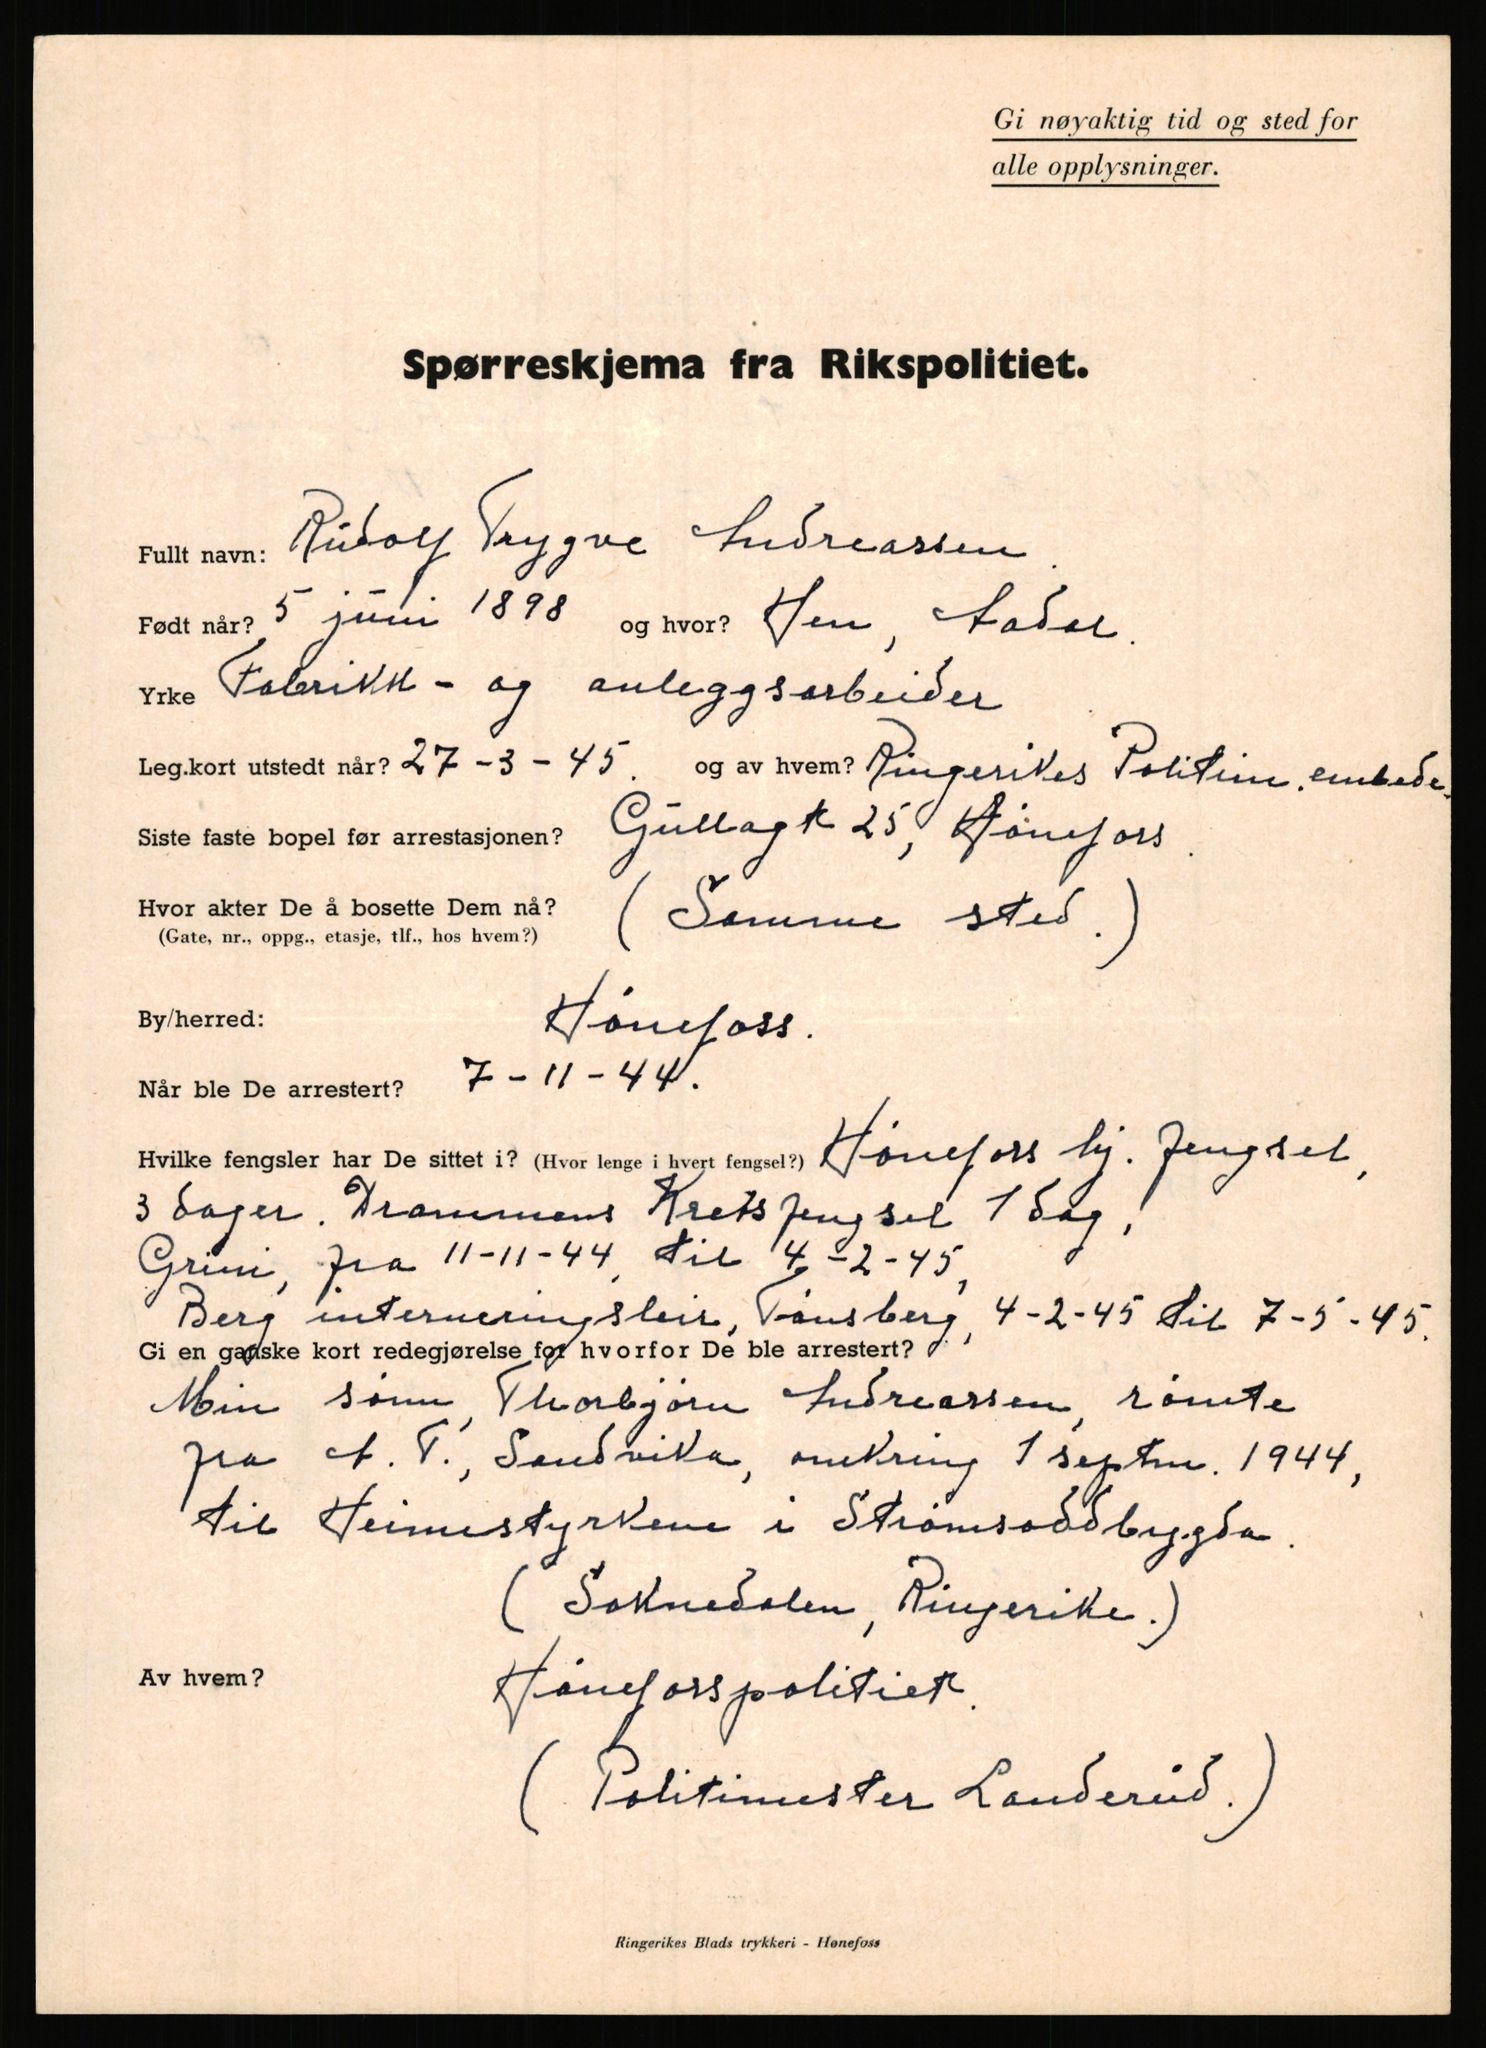 Gi nøyaktig tid og sted for
alle opplysninger.
Spørreskjema fra Rikspolitiet.
Fullt navn: Rudolf Trygve Andreassen.
Født når? 5 juni 1898 og hvor? Hen, Aadal.
Yrke Fabrikk- og anleggsarbeider
Leg.kort utstedt når? 27-3-45. og av hvem? Ringerikes Politim. embede.
Siste faste bopel før arrestasjonen? Gullagt 25, Hønefoss.
Hvor akter De å bosette Dem nå? (Samme sted.)
(Gate, nr., oppg., etasje, tlf., hos hvem?)
By/herred: Hønefoss.
Når ble De arrestert? 7-11-44.
Hvilke fengsler har De sittet i? (Hvor lenge i hvert fengsel?) Hønefoss hj. fengsel,
3 dager. Drammens Kretsfengsel 1 dag,
Grini, fra 11-11-44, til 4-2-45,
Berg interneringsleir, Tønsberg, 4-2-45 til 7-5-45.
Gi en ganske kort redegjørelse for hvorfor De ble arrestert?
Min sønn, Thorbjørn Andreassen, rømte
fra A. T., Sandvika, omkring 1 septm. 1944,
til Heimestyrkene i Strømsoddbygda.
(Soknedalen, Ringerike.)
Av hvem? Hønefosspolitiet.
(Politimester Landerud.)
Ringerikes Blads trykkeri - Hønefoss